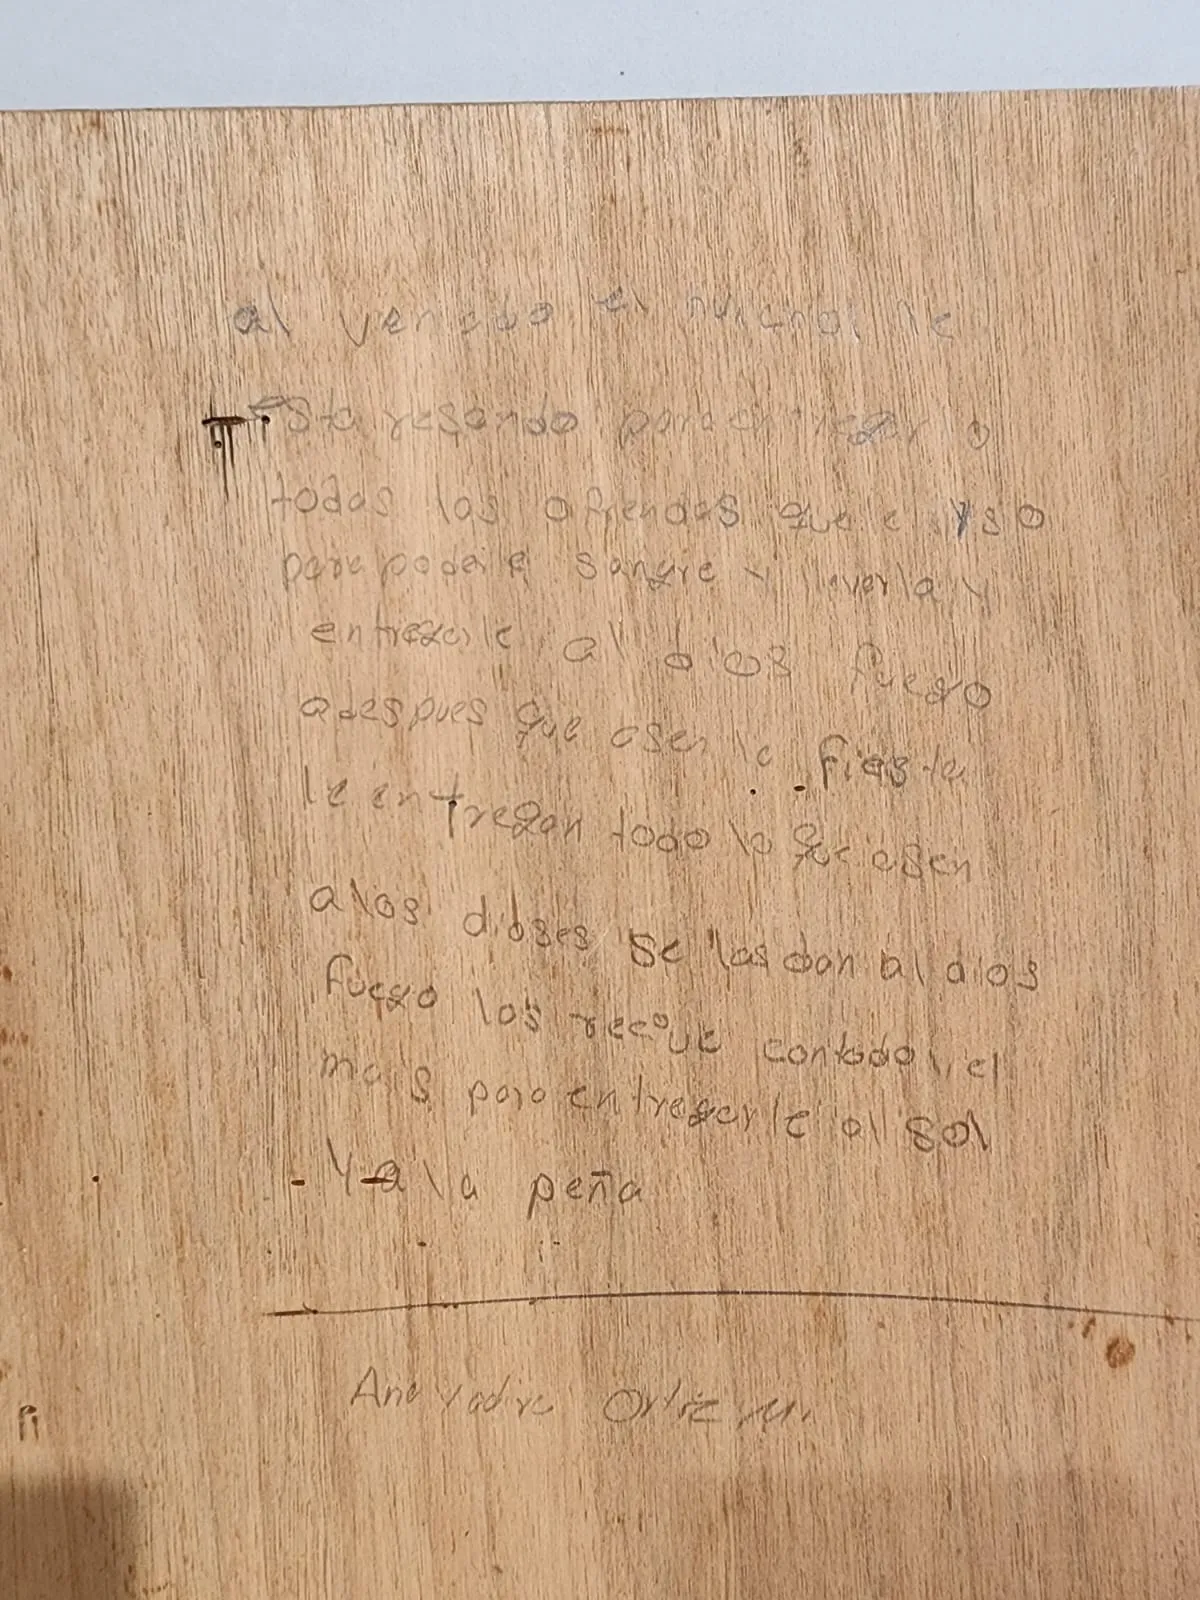 al venado el huichol le
esta resando para entregarlo
todas las ofrendas que e yso
para poderle sangre y leverla y
entregarle al dios fuego
adespues que asen la fiesta
le entregan todo lo que asen
a los dioses se las dan al dios
fuego los recoje con todo y el
mais para entregarle al sol
Y a la peña
Ana Yadira Ortiz M.